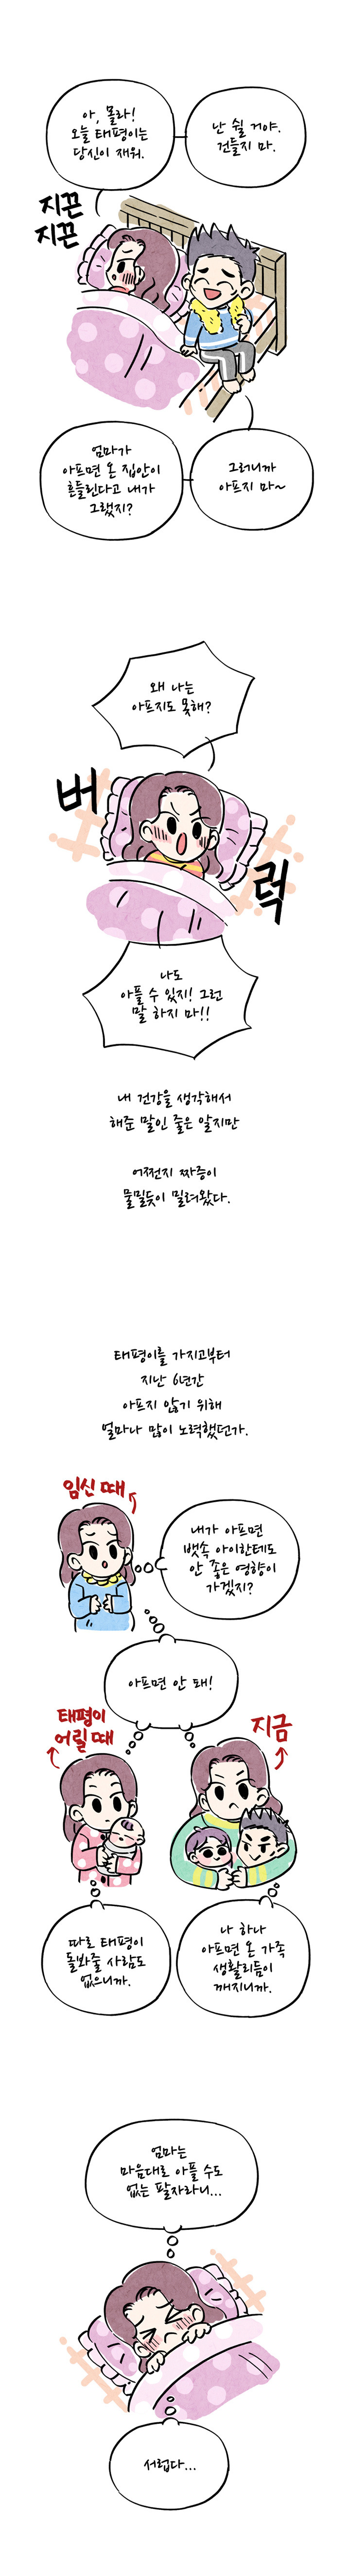 아, 몰라!
오늘 태평이는
당신이 재워.
난 쉴 거야.
건들지 마.
지끈
지끈
엄마가
아프면 온 집안이
흔들린다고 내가
그랬지?
그러니까
아프지 마~
왜 나는
아프지도 못해?
버
럭
나도
아플 수 있지! 그런
말 하지 마!!
내 건강을 생각해서
해준 말인 줄은 알지만
어쩐지 짜증이
물밀듯이 밀려왔다.
태평이를 가지고부터
지난 6년간
아프지 않기 위해
얼마나 많이 노력했던가.
임신 때
내가 아프면
뱃속 아이한테도
안 좋은 영향이
가겠지?
아프면 안 돼!
태평이
어릴 때
지금
따로 태평이
돌봐줄 사람도
없으니까.
나 하나
아프면 온 가족
생활리듬이
깨지니까.
엄마는
마음대로 아플 수도
없는 팔자라니...
서럽다...